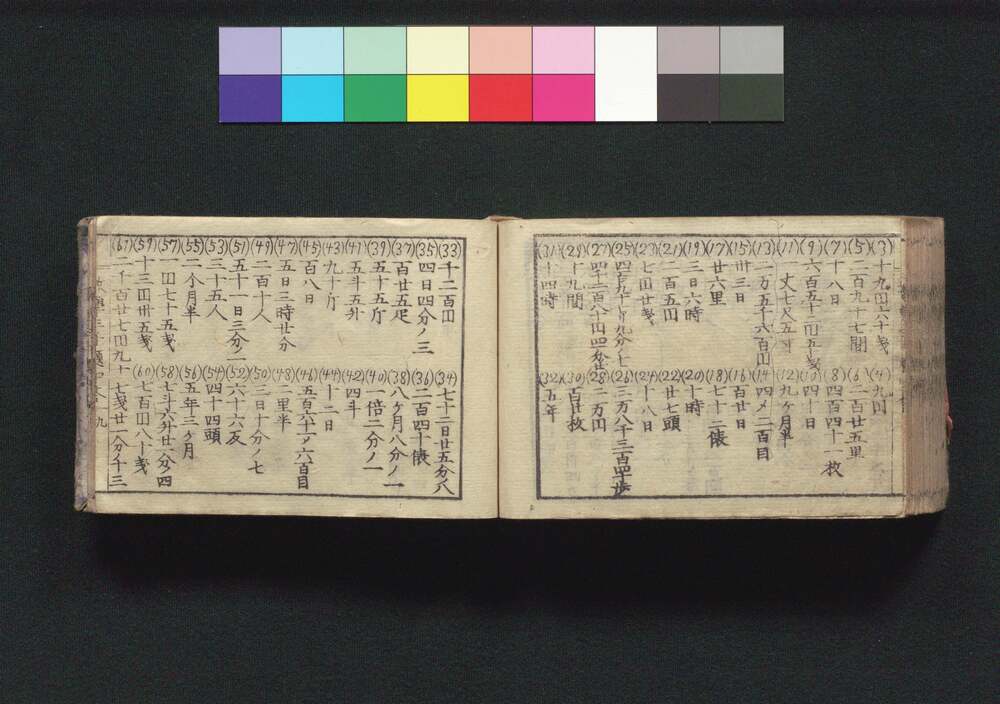 (3)十九円六十銭 (4)九円
(5)二百九十七間 (6)百廿五里
(7)十八日 (8)四百四十一枚
(9)六百五十二円五銭 (10)四十日
(11)一丈七尺五寸 (12)九ヶ月半
(13)二万五千六百円 (14)四〆二百目
(15)卅三日 (16)百廿日
(17)廿六里 (18)七十二俵
(19)三日六時 (20)十時
(21)二百五円 (22)廿七頭
(23)七円廿銭 (24)十八日
(25)四百九十 (26)二万八千三百四十歩
(27) (28)二万円
(29)十九間 (30)百廿枚
(31)十四時 (32)五年
(33)千二百円 (34)七十二日廿五分ノ八
(35)四日四分ノ三 (36)二百四十俵
(37)百廿五疋 (38)八ヶ月八分ノ一
(39)五十五斤 (40)一倍二分ノ一
(41)五斗五升 (42)四斗
(43)九十斤 (44)十二日
(45)百八日 (46)五百六十一〆六百目
(47)五日三時廿分 (48)一里半
(49)二百十人 (50)三日十分ノ七
(51)五十一日三分ノ二 (52)六十六反
(53)三十五人 (54)四十四頭
(55)二个月半 (56)五年三ヶ月
(57)一円七十五銭 (58)七斗六升廿一分四
(59)十三円卅五銭 (60)七百円八十銭
(61)二千百廿七円九十七銭廿一分十三